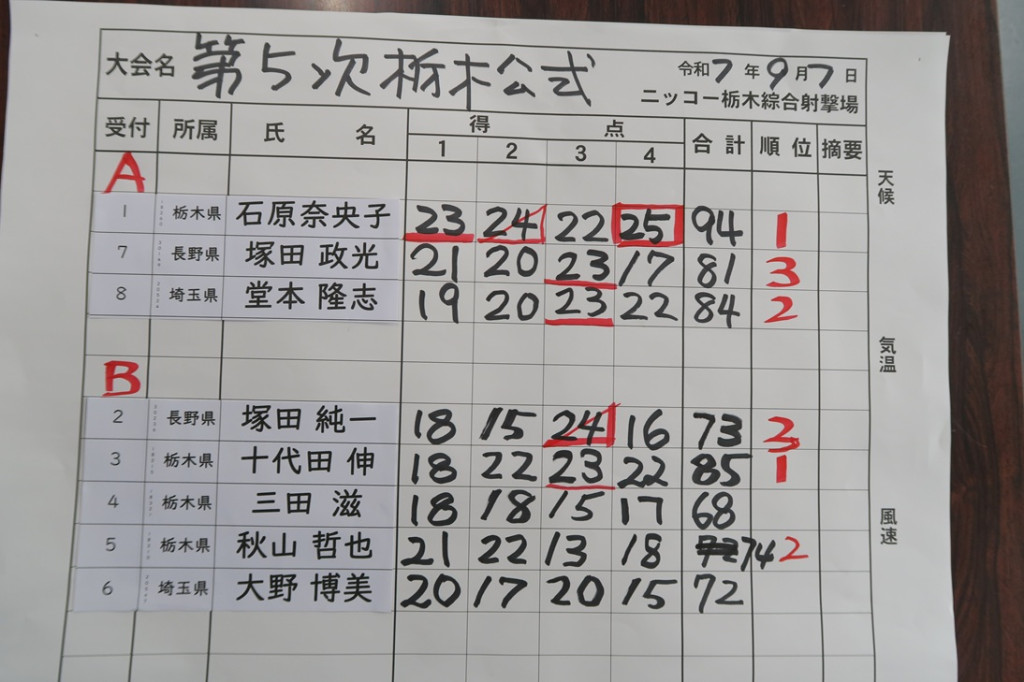 大会名 第5次栃木公式 令和7年9月7日
ニッコー栃木綜合射撃場
受付 所属 氏名 得点 合計 順位 摘要
1 2 3 4
天候
A
1 栃木県 石原奈央子 23 24 22 25 94 1
7 長野県 塚田 政光 21 20 23 17 81 3
8 埼玉県 堂本 隆志 19 20 23 22 84 2
気温
B
2 長野県 塚田 純一 18 15 24 16 73 3
3 栃木県 十代田 伸 18 22 23 22 85 1
4 栃木県 三田 滋 18 18 15 17 68
風速
5 栃木県 秋山 哲也 21 22 13 18 74 2
6 埼玉県 大野 博美 20 17 20 15 72